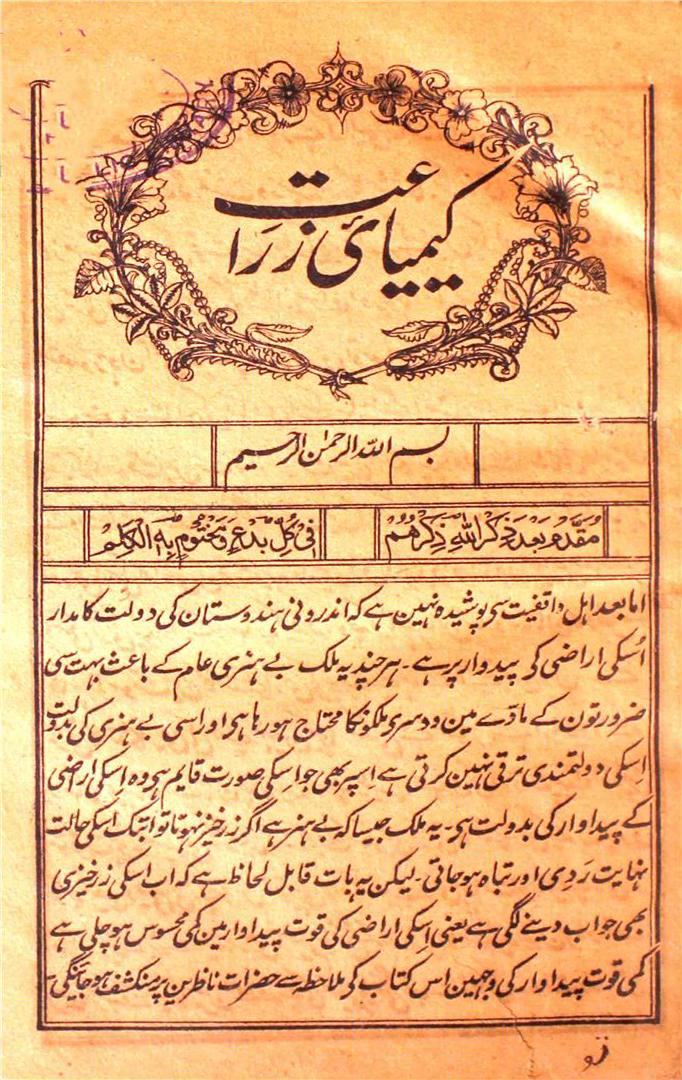 کیمیائ زراعت
بسم اللہ الرحمٰن الرحیم
مُقَدَّمٌ بَعدَ ذِکرِ اللّٰہِ ذِکرُھُم فِی کُلِّ بَدءٍ وَ مَختُومٍ بِہِ الکَلِمُ
اما بعد اہل واقفیت سی پوشیدہ نہین ہے کہ اندرونی ہندوستان کی دولت کا مدار
اُسکی اراضی کی پیدوار پر ہے ۔ ہر چند یہ ملک بے ہنری عام کے باعث بہت سی
ضرورتون کے مادّے مین دوسری ملکونکا محتاج ہو رہا ہی اور اسی بے ہنری کی بدولت
اِسکی دولتمندی ترقی نہین کرتی ہے اِسپر بھی جو اسکی صورت قایم ہی وہ اِسکی اراضی
کے پیداوار کی بدولت ہی ۔ یہ ملک جیسا کہ بے ہنر ہے اگر زرخیز نہوتا تو ابتک اسکی حالت
نہایت رَدی اور تباہ ہو جاتی ۔ لیکن یہ بات قابل لحاظ ہے کہ اب اسکی زرخیزی
بھی جواب دینے لگی ہے یعنی اِسکی اراضی کی قوت پیداوار مین کمی محسوس ہو چلی ہے
کمی قوت پیداوار کی وجہین اس کتاب کی ملاحظہ سے حضرات ناظرین پر منکشف ہو جائینگی ۔
تو